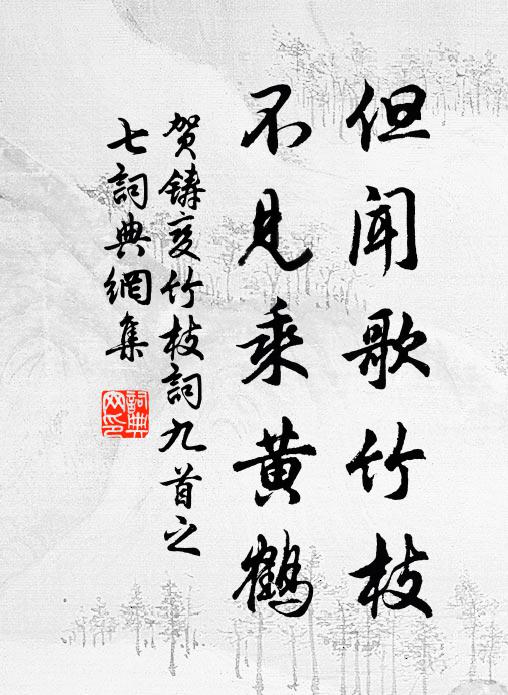 但闻歌竹枝
不见乘黄鹤
贺铸变竹枝词九首之
七詞典網集
詞典
网印